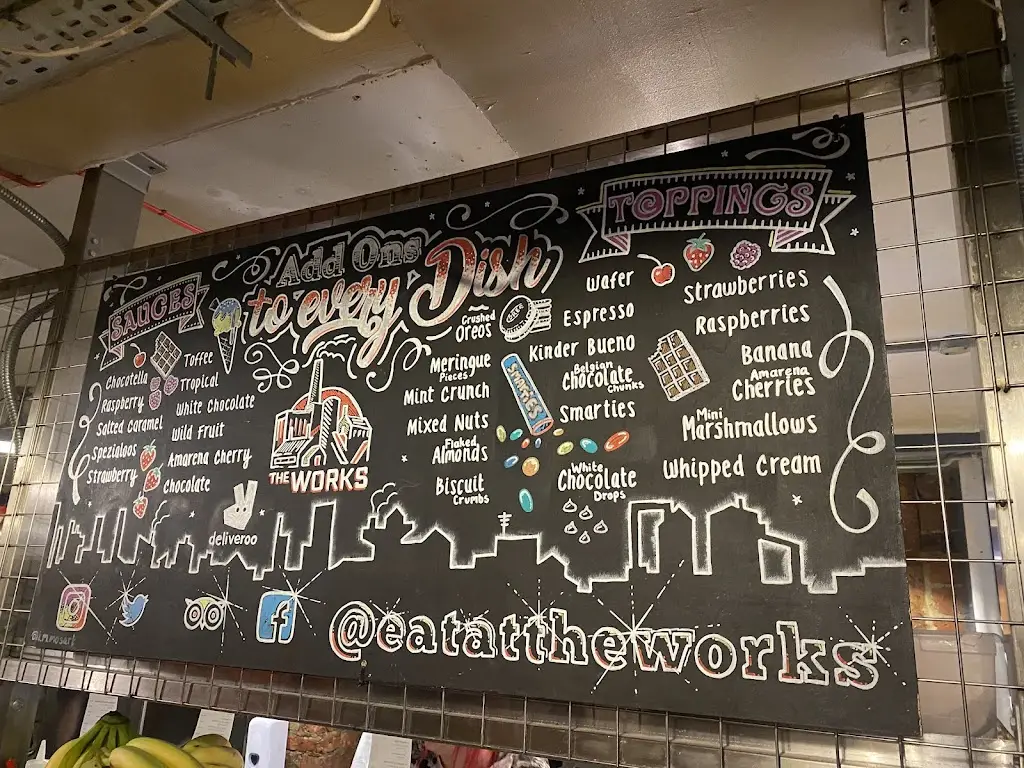 SAUCES
Add Ons
to every Dish
TOPPINGS
Toffee
Chocotella
Tropical
Raspberry
White Chocolate
Salted Caramel
Wild Fruit
Spezialoos
Amarena Cherry
Strawberry
Chocolate
THE WORKS
deliveroo
Crushed
Oreos
Meringue
Pieces
Mint Crunch
Mixed Nuts
Flaked
Almonds
Biscuit
Crumbs
Wafer
Espresso
Kinder Bueno
Belgian
Chocolate
Chunks
SMARTIES
Smarties
White
Chocolate
Drops
Strawberries
Raspberries
Banana
Amarena
Cherries
Mini
Marshmallows
Whipped Cream
f
@eatattheworks